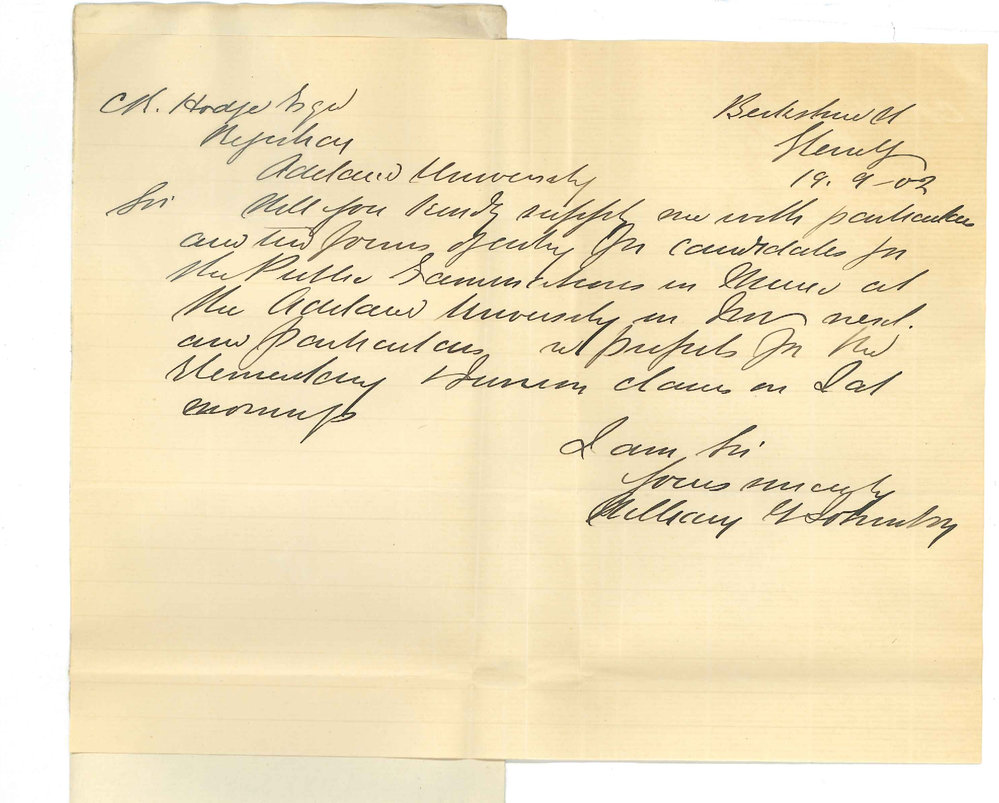 C R. Hodge Esqr
Registrar
Adelaide University
Berkshire St
Glenelg
19. 9 - 02
Sir Will you kindly supply me with particulars
and two forms of entry for candidates for
the Public Examinations in Music at
the Adelaide University in Nov next.
and particulars re pupils for the
Elementary & Junior classes on Sat
mornings
I am Sir
yours sincerely
William